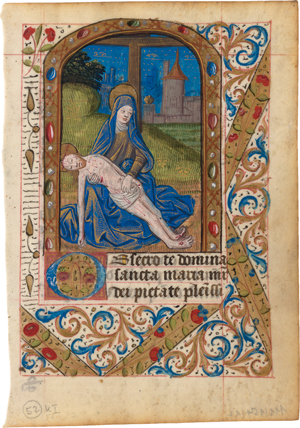 OBsecro te domina
sancta maria mr
dei pietate pleissi